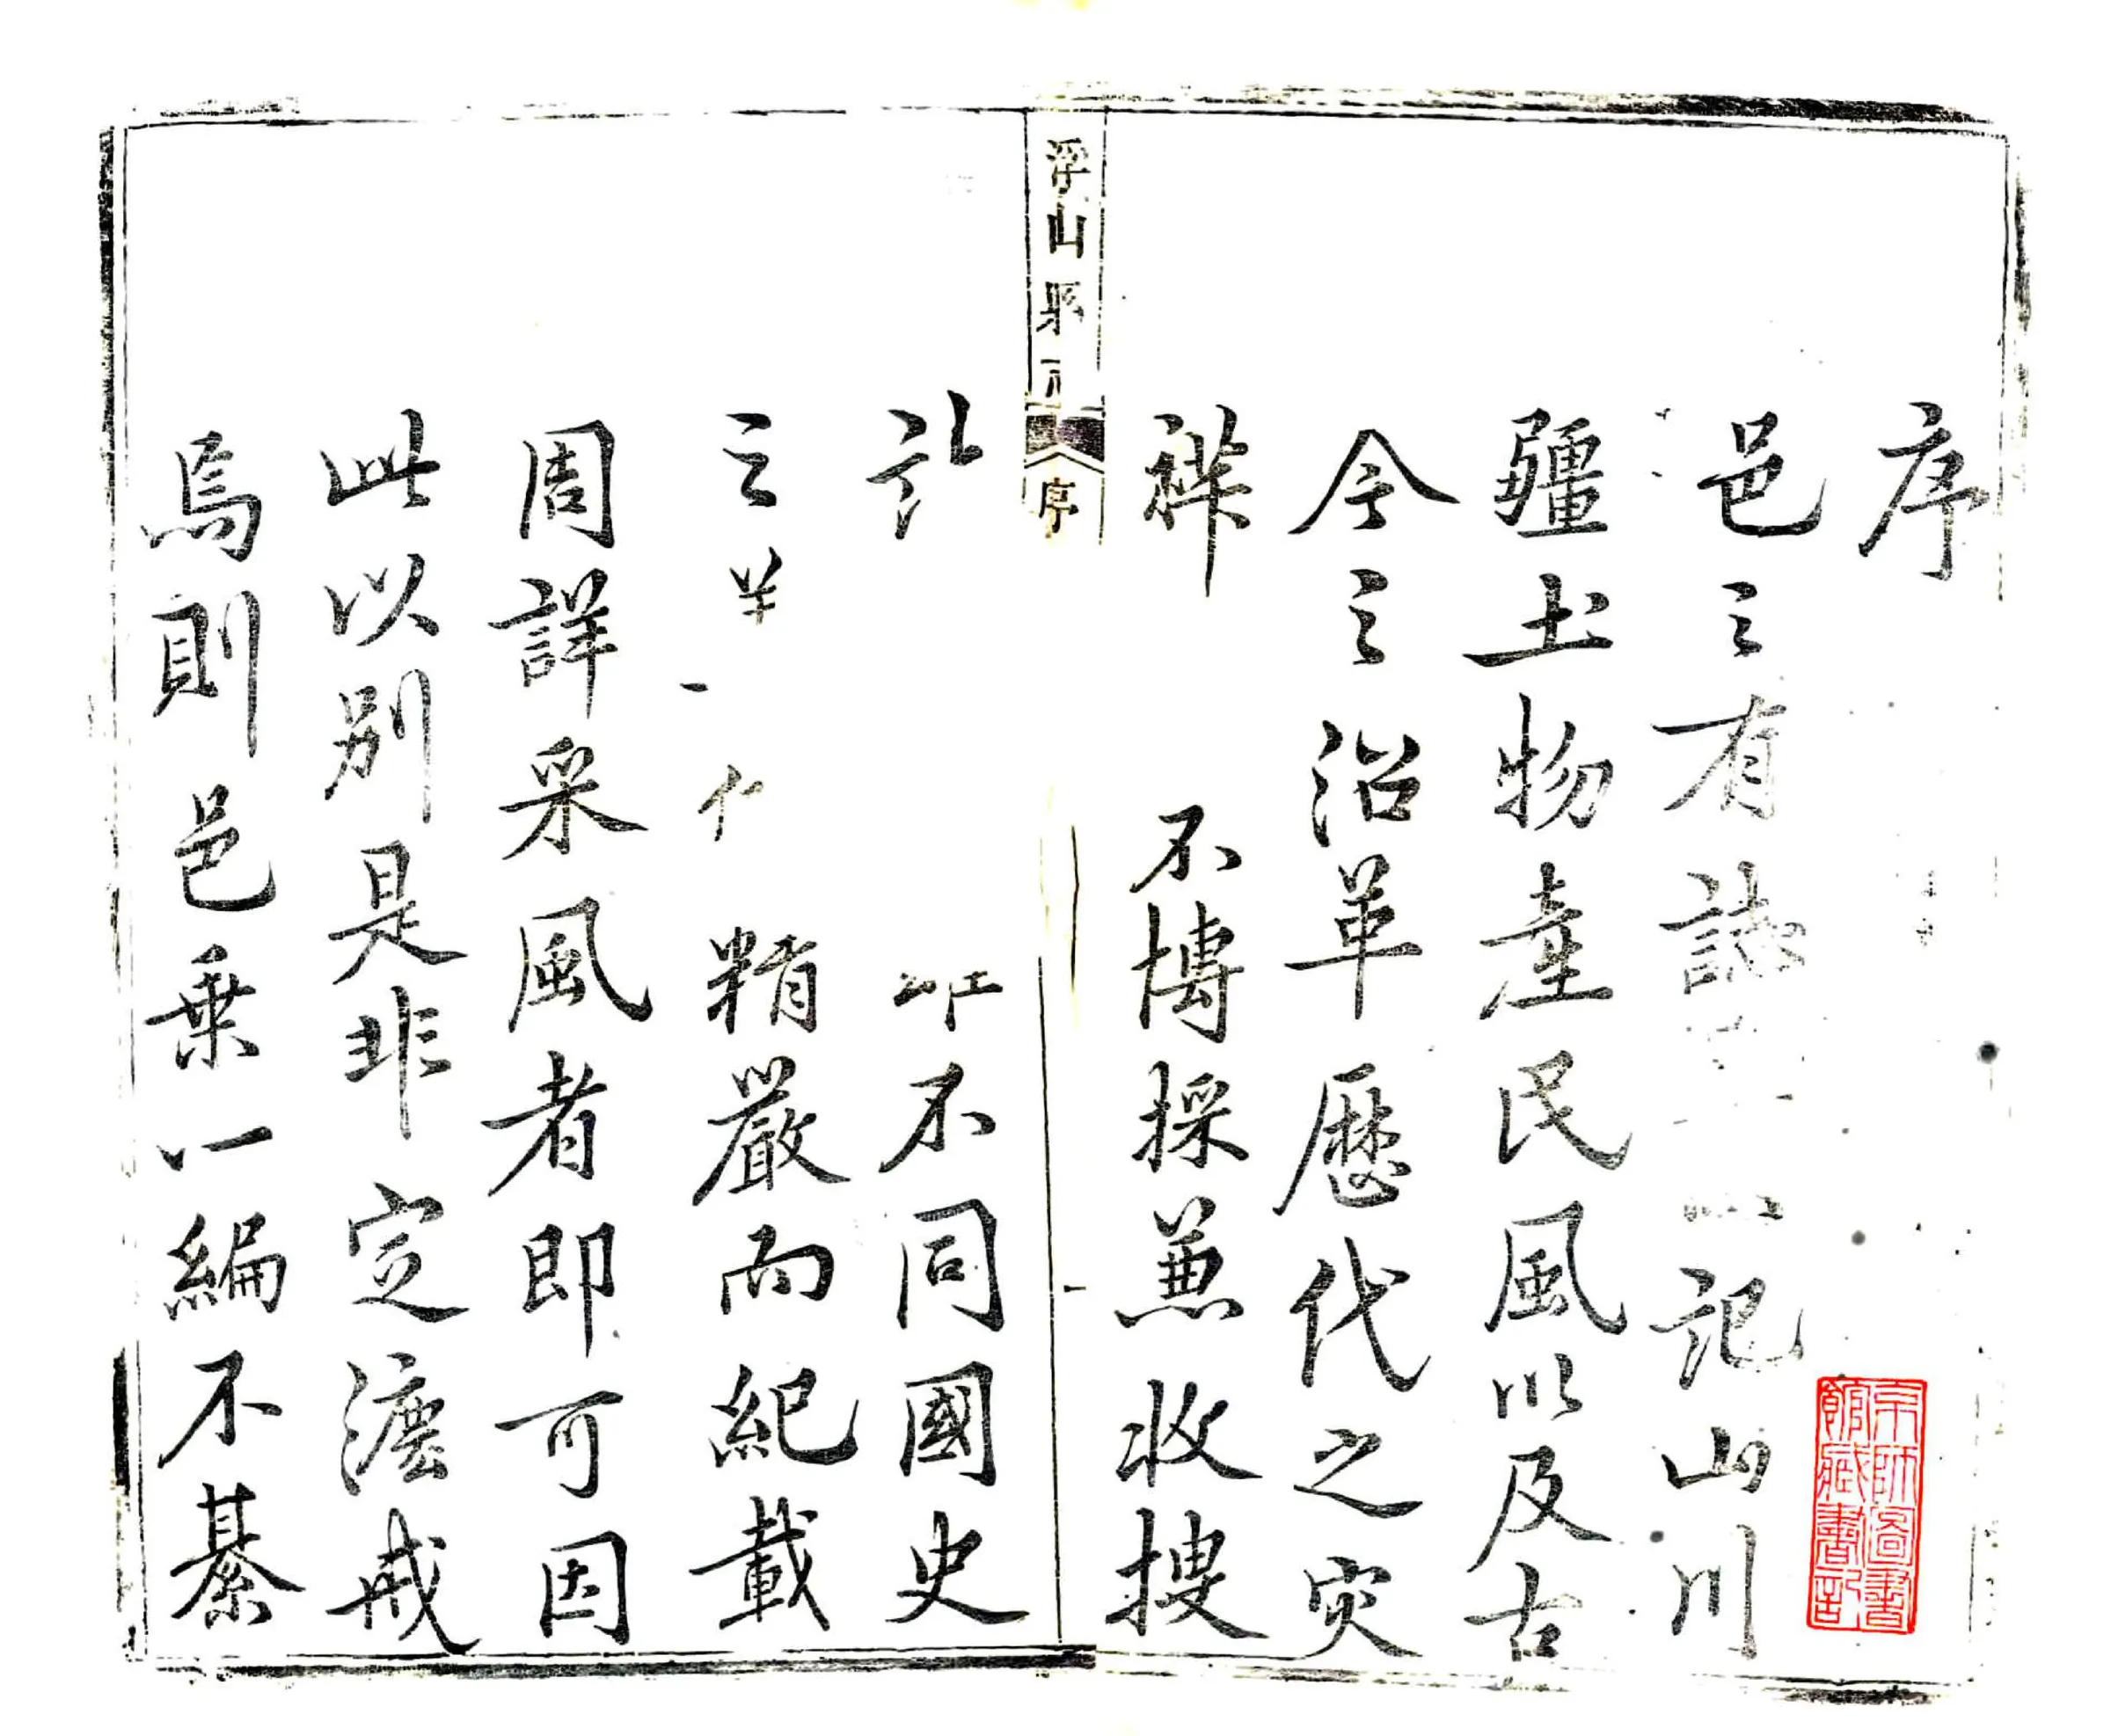 序
邑之有誌 記山川
疆土物產民風以及古
今之沿革歷代之災
祥 不博採兼收搜
浮山縣 序
不同國史
之 精嚴而紀載
周詳采風者即可因
此以別是非定灋戒
焉則邑乗一編不綦
京師圖書
館藏書記